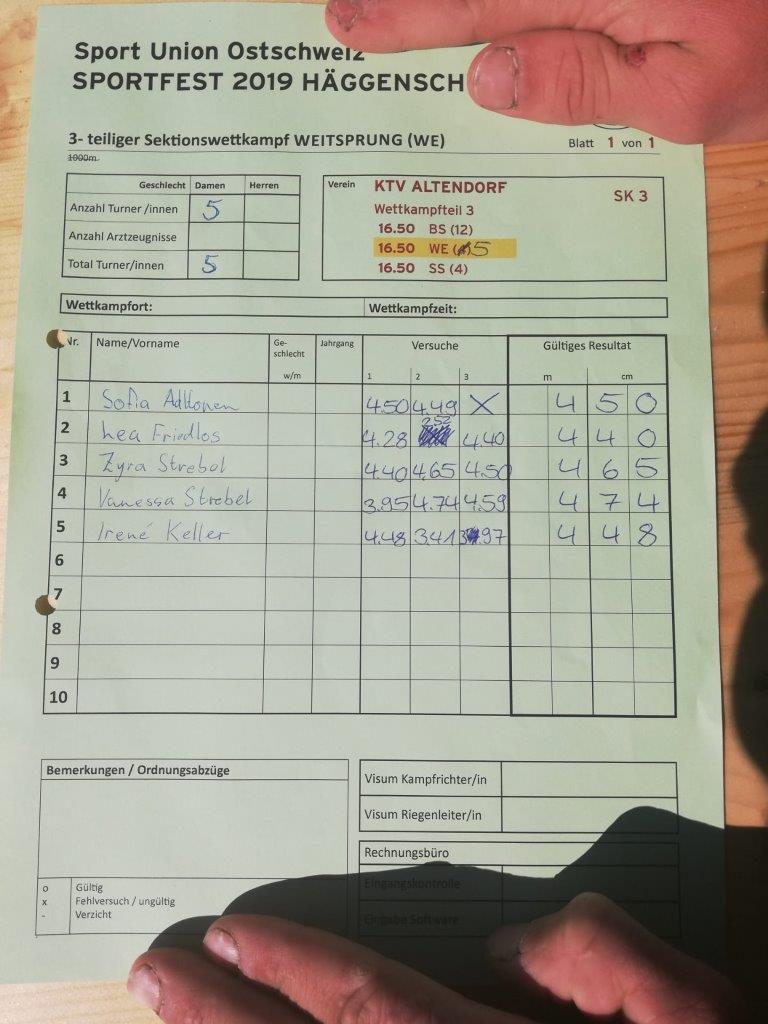 Sport Union Ostschweiz
SPORTFEST 2019 HÄGGENSCH
3- teiliger Sektionswettkampf WEITSPRUNG (WE)
Blatt 1 von 1
1000m.
Geschlecht Damen Herren
Anzahl Turner /innen 5
Anzahl Arztzeugnisse
Total Turner/innen 5
Verein KTV ALTENDORF SK 3
Wettkampfteil 3
16.50 BS (12)
16.50 WE ( 5
16.50 SS (4)
Wettkampfort: Wettkampfzeit:
Nr. Name/Vorname Ge-schlecht w/m Jahrgang Versuche 1 2 3 Gültiges Resultat m cm
1 Sofia 4.50 4.49 X 4 5 0
2 Lea Friedlos 4.28 2.52 4.40 4 4 0
3 Zyra Strebel 4.40 4.65 4.50 4 6 5
4 Vanessa Strebel 3.95 4.74 4.59 4 7 4
5 Irené Keller 4.48 3.41 3.97 4 4 8
6
7
8
9
10
Bemerkungen / Ordnungsabzüge
o Gültig
x Fehlversuch / ungültig
- Verzicht
Visum Kampfrichter/in
Visum Riegenleiter/in
Rechnungsbüro
Eingangskontrolle
Eingabe Software